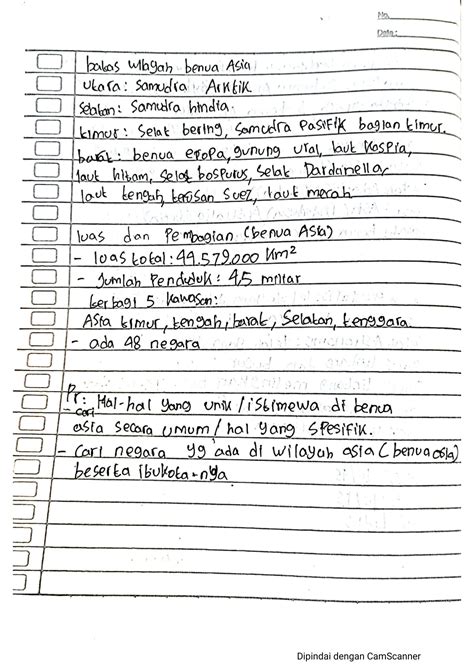 No.
Date:
batas wilayah benua Asia
Utara: Samudra Arktik
Selatan: Samudra hindia.
timur: Selat bering, Samudra Pasifik bagian timur.
barat: benua eropa, gunung ural, laut Kaspia,
laut hitam, Selat bospurus, Selat Dardanella,
laut tengah, terusan Suez, laut merah
luas dan Pembagian (benua Asia)
- luas total: 44.579.000 Km²
- Jumlah Penduduk: 4,5 miliar
terbagi 5 kawasan:
Asia timur, tengah, barat, Selatan, tenggara.
- ada 48 negara
Pr: Hal-hal yang unik/istimewa di benua
- cari
asia secara umum/hal yang spesifik.
- Cari negara yg ada di wilayah asia (benua asia)
beserta ibukota-nya
Dipindai dengan CamScanner